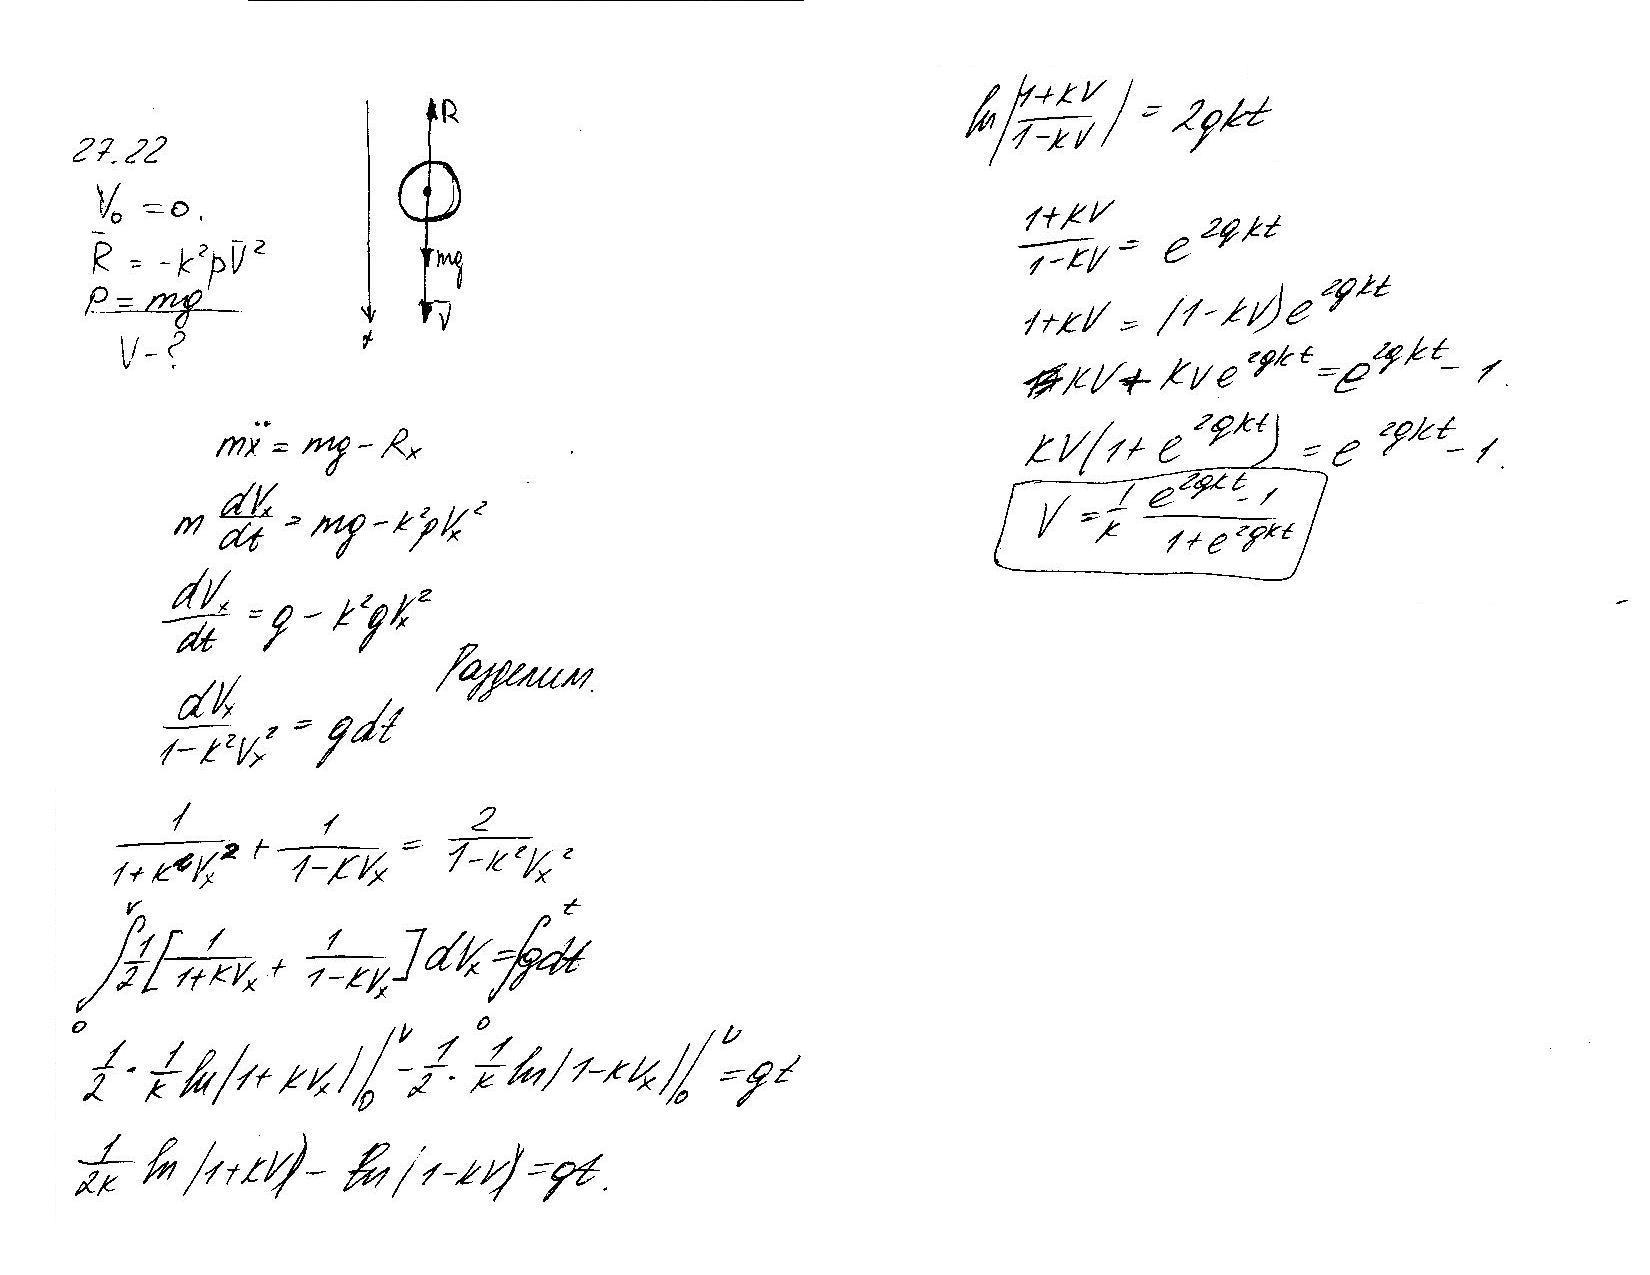 27.22
V₀ = 0.
R̄ = -k²pV̄²
P = mg
V - ?
R
mg
V̄
x
mẍ = mg - Rₓ
m dVₓ/dt = mg - k²pVₓ²
dVₓ/dt = g - k²gVₓ²
Разделим.
dVₓ/(1-k²Vₓ²) = gdt
1/(1+k²Vₓ²) + 1/(1-KVₓ) = 2/(1-k²Vₓ²)
∫₀ᵛ 1/2 [1/(1+KVₓ) + 1/(1-KVₓ)] dVₓ = ∫₀ᵗ gdt
1/2 · 1/k ln|1+KVₓ| |₀ᵛ - 1/2 · 1/k ln|1-KVₓ| |₀ᵛ = gt
1/2k ln(1+KV) - ln(1-KV) = gt.
ln|(1+KV)/(1-KV)| = 2gkt
(1+KV)/(1-KV) = e^2gkt
1+KV = (1-KV)e^2gkt
KV + KVe^2gkt = e^2gkt - 1.
KV(1+e^2gkt) = e^2gkt - 1.
V = 1/k (e^2gkt - 1)/(1+e^2gkt)